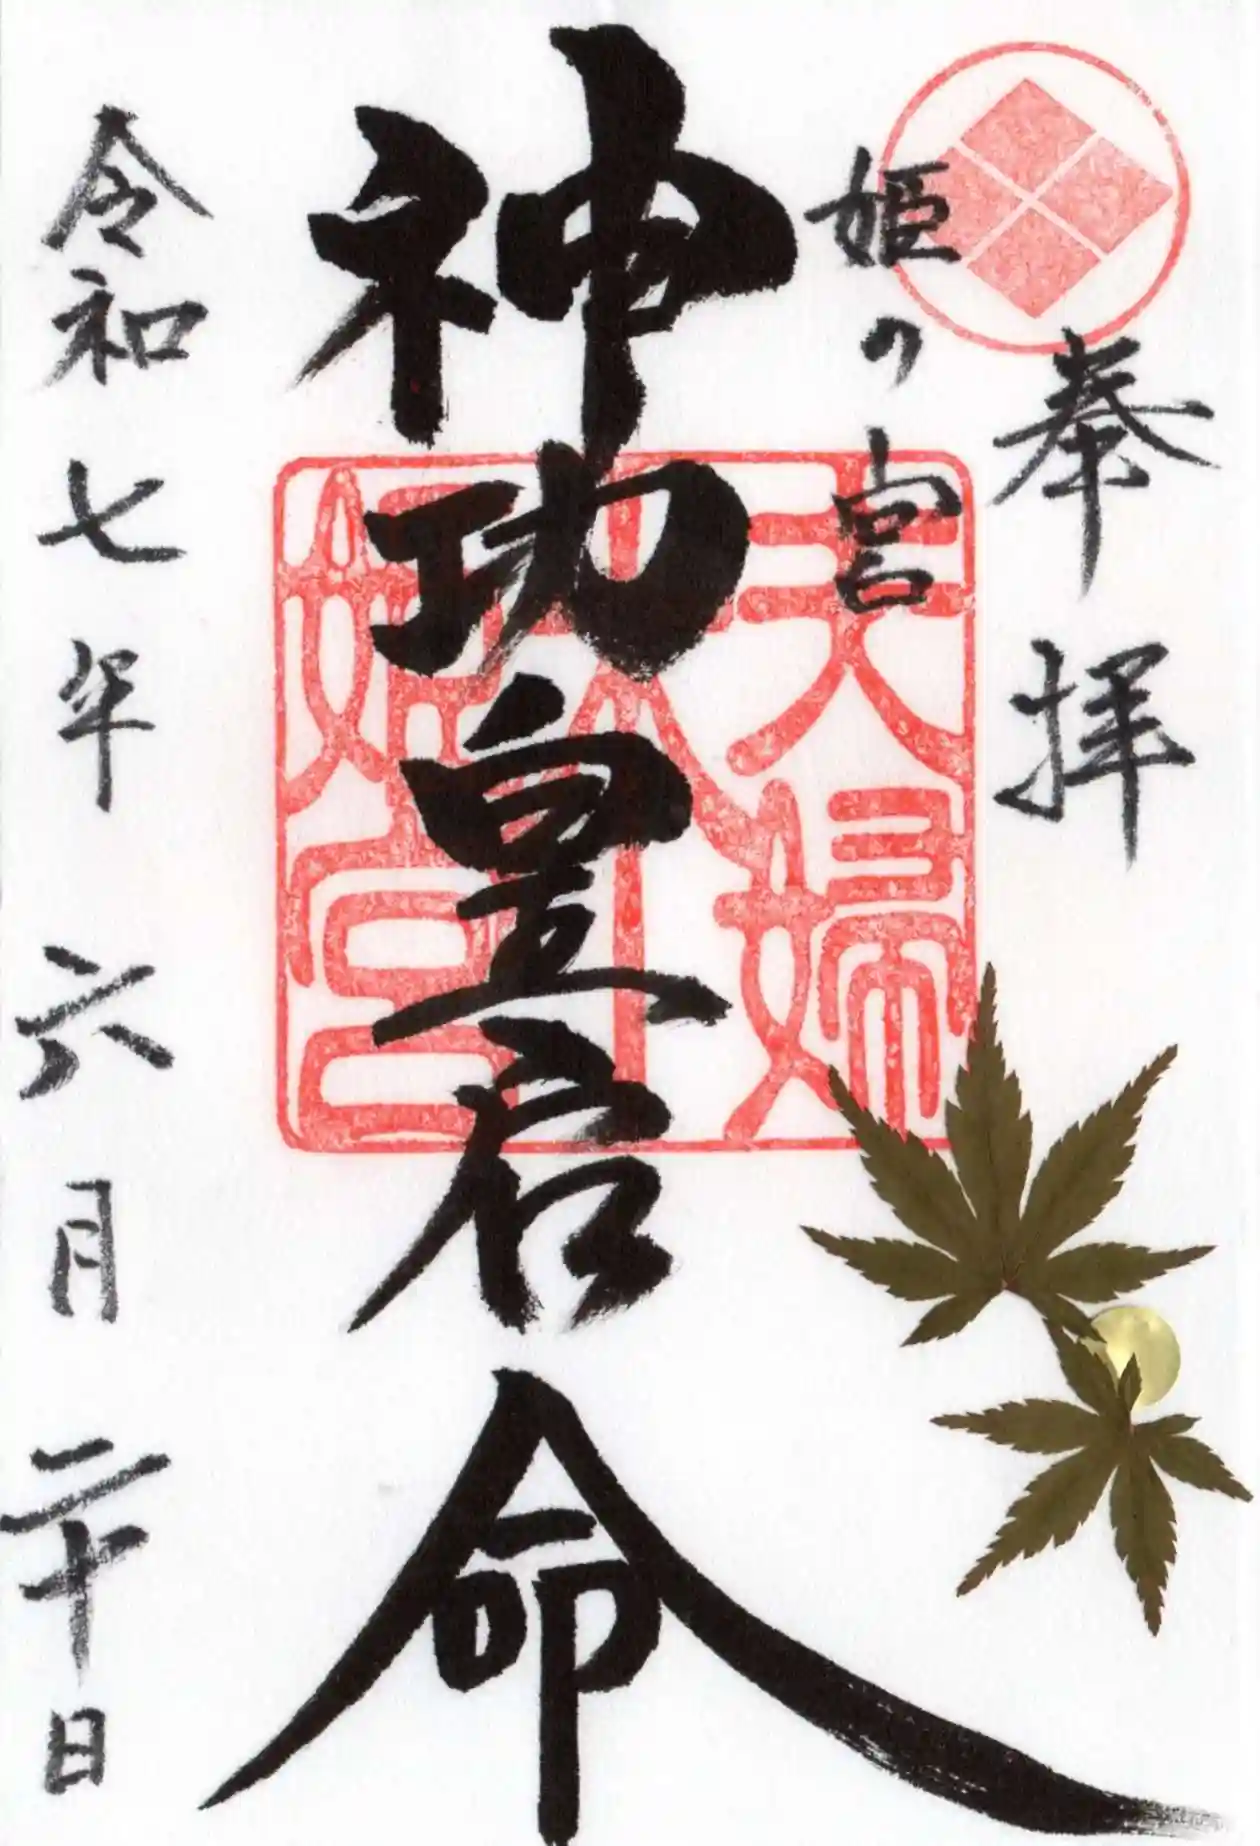 奉拝
姫の宮
神功皇后命
令和七年六月二十日
夫婦
木
姫宮